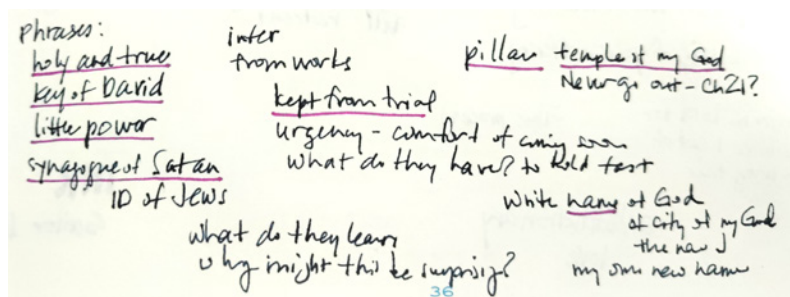 Phrases:
holy and true
key of David
little power
synagogue of Satan
ID of Jews
inter
from works
kept from trial
urgency - comfort of coming soon
What do they have? to hold fast
What do they learn
why might this be surprising?
pillar temple of my God
Never go out - Ch 21?
White name of God
of city of my God
the new J
my own new name
36